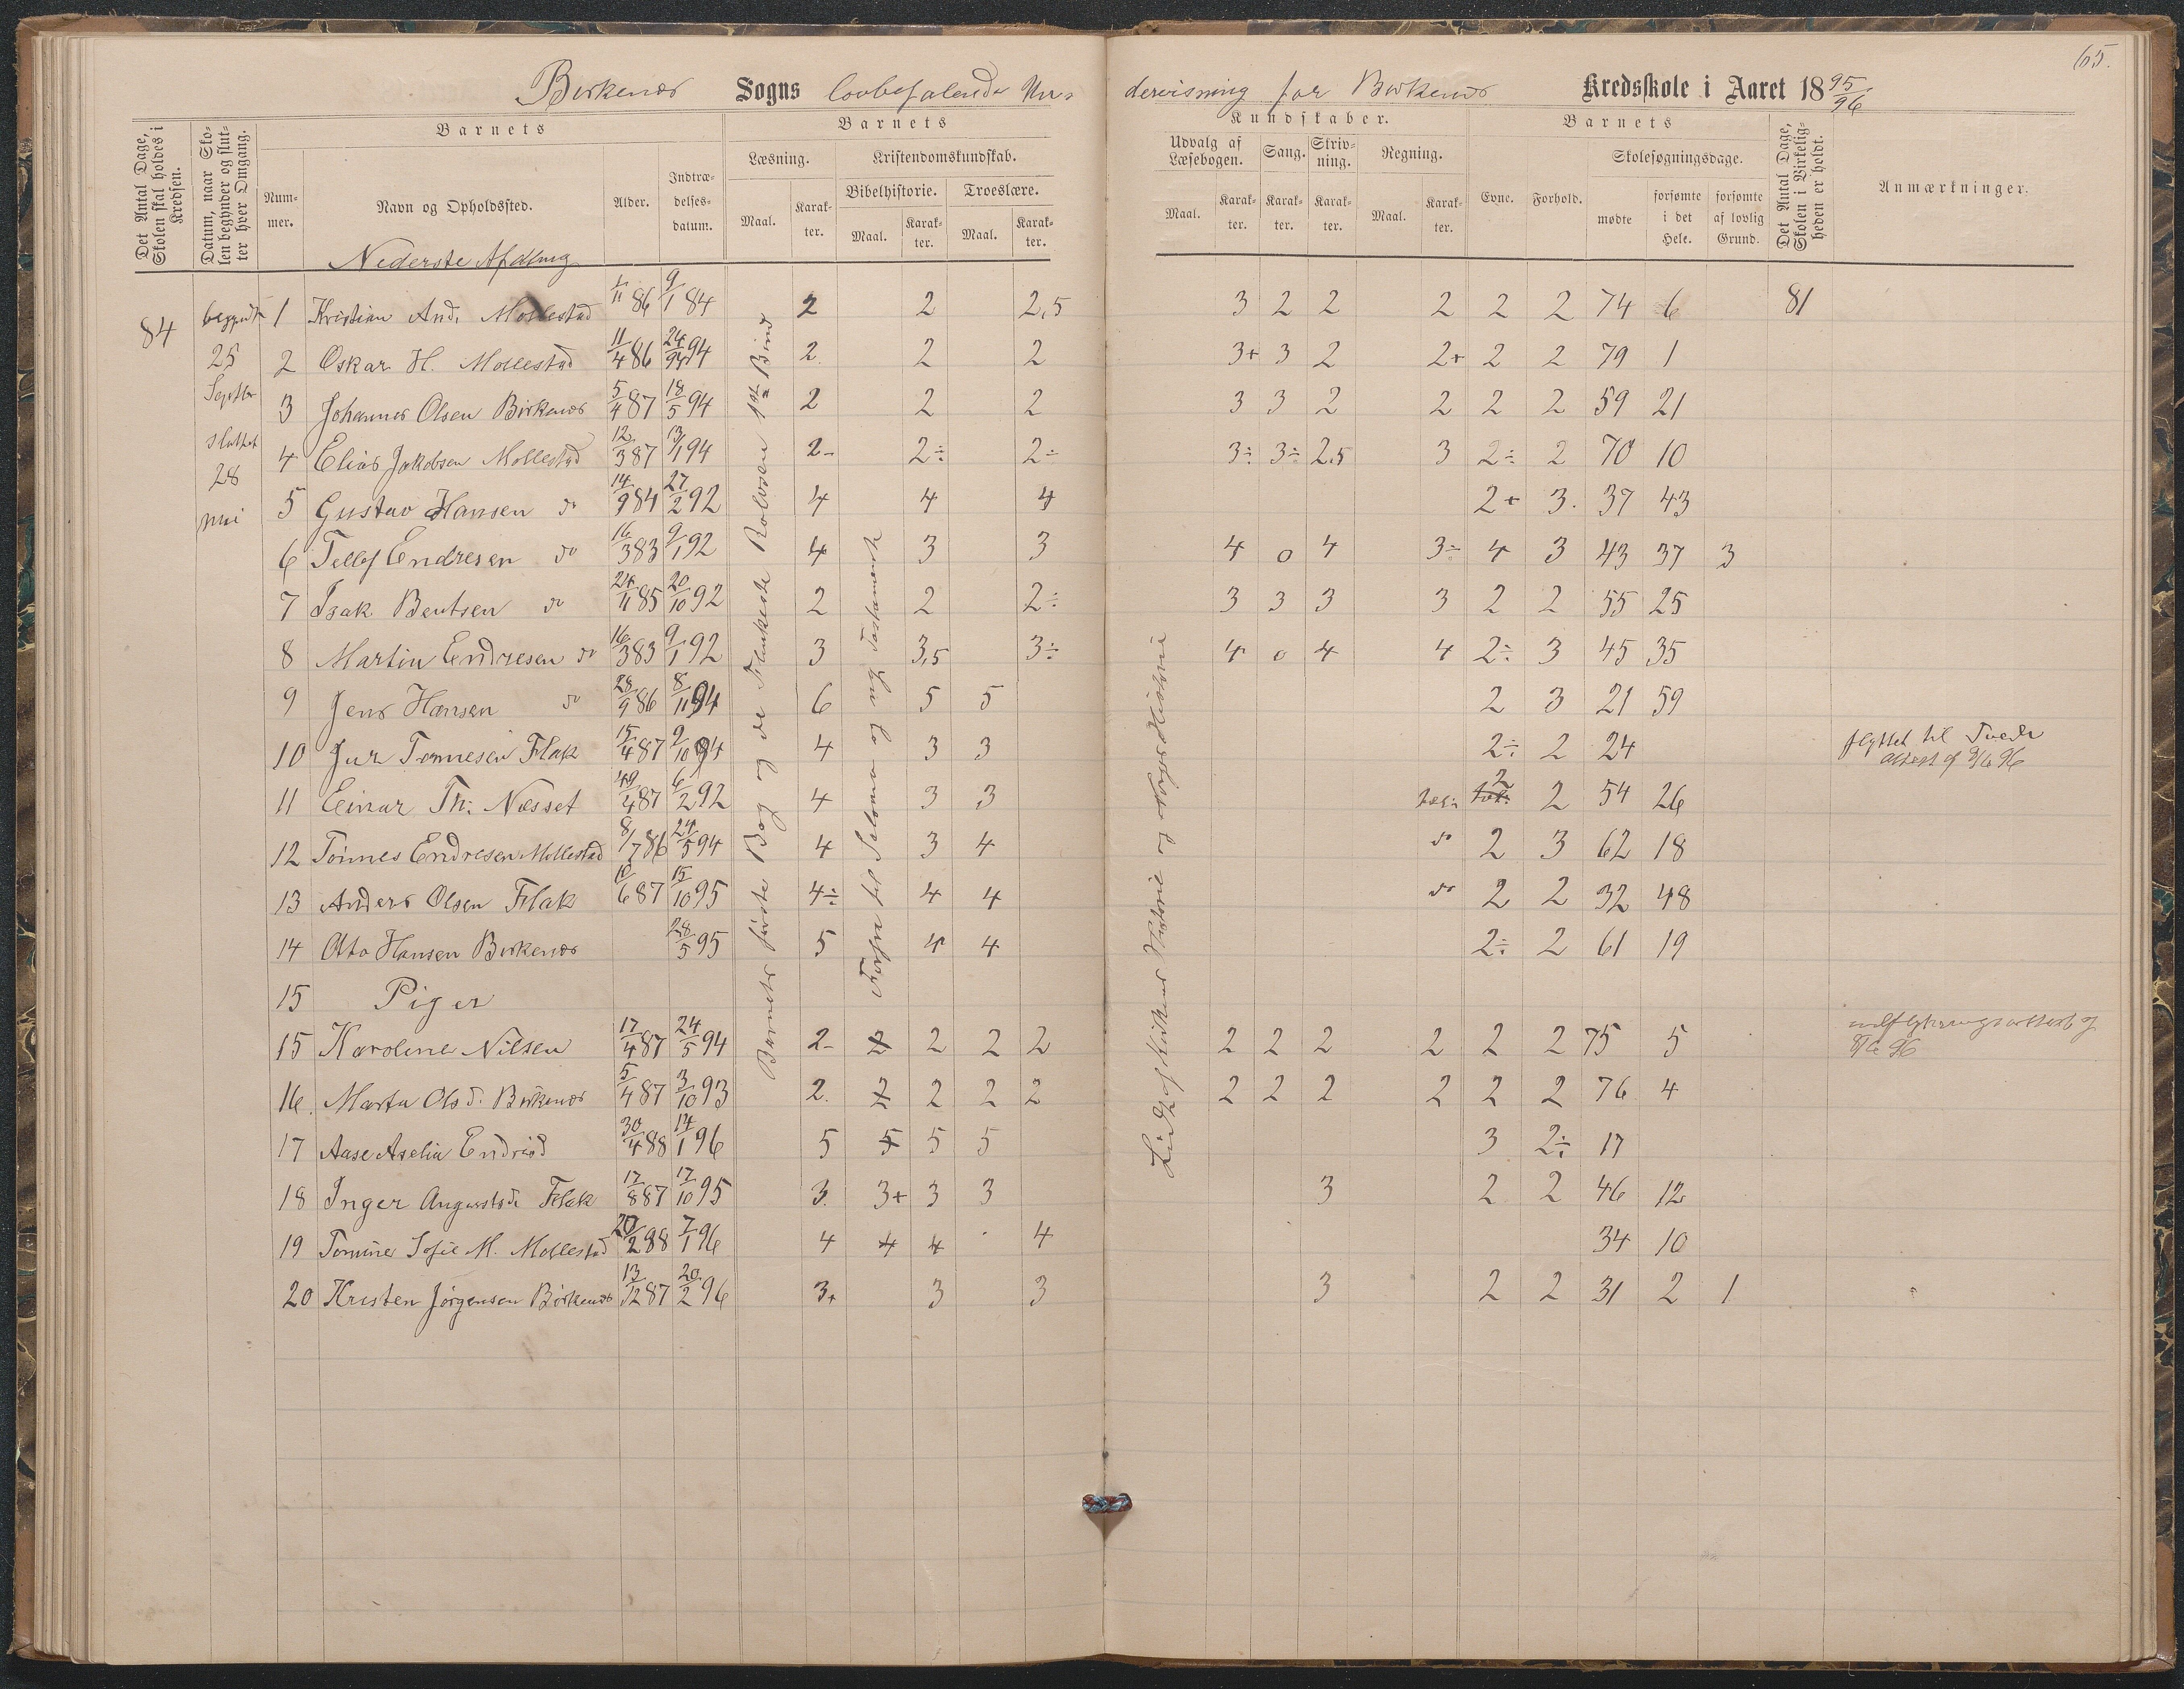 65.
Birkenæs Sogns lovbefalende Undervisning for Birkenæs Kredsskole i Aaret 1895/96
Det Antal Dage, Skolen skal holdes i Kredsen.
Datum, naar Skolen begynder og slutter hver Omgang.
Barnets
Barnets
Kundskaber.
Barnets
Det Antal Dage, Skolen i Virkeligheden er holdt.
Anmærkninger.
Nummer.
Navn og Opholdssted.
Alder.
Indtrædelsesdatum.
Læsning.
Kristendomskundskab.
Bibelhistorie.
Troeslære.
Maal. Karakter. Maal. Karakter. Maal. Karakter.
Udvalg af Læsebogen.
Sang.
Skrivning.
Regning.
Maal. Karakter. Karakter. Karakter. Maal. Karakter.
Evne.
Forhold.
Skolesøgningsdage.
mødte
forsømte i det Hele.
forsømte af lovlig Grund.
Nederste Afdeling
84
begyndt
25
Septbr
sluttet
28
mai
1 Kristian And. Mollestad 1/11 86 9/1 84 2 2 2,5 3 2 2 2 2 2 74 6 81
2 Oskar H. Mollestad 11/4 86 24/94 94 2. 2 2 3+ 3 2 2+ 2 2 79 1
3 Johannes Olsen Birkenæs 5/4 87 18/5 94 2 2 2 3 3 2 2 2 2 59 21
4 Elias Jakobsen Mollestad 12/3 87 13/1 94 2- 2÷ 2÷ 3÷ 3÷ 2,5 3 2÷ 2 70 10
5 Gustav Hansen do 14/9 84 27/2 92 4 4 4 2+ 3. 37 43
6 Tellef Endresen do 16/3 83 9/1 92 4 3 3 4 0 4 3÷ 4 3 43 37 3
7 Isak Bentsen do 24/11 85 20/10 92 2 2 2÷ 3 3 3 3 2 2 55 25
8 Martin Endresen do 16/3 83 9/1 92 3 3,5 3÷ 4 0 4 4 2÷ 3 45 35
9 Jens Hansen do 28/9 86 8/11 94 6 5 5 2 3 21 59
10 Jur Tønnesen Flak 15/4 87 9/10 94 4 3 3 2÷ 2 24 flyttet til Tvede
attest af 9/6 96
11 Einar Th. Næsset 19/4 87 6/2 92 4 3 3 2 2 54 26
12 Tønnes Endresen Mollestad 8/7 86 24/5 94 4 3 4 do 2 3 62 18
13 Anders Olsen Flak 10/6 87 15/10 95 4÷ 4 4 do 2 2 32 48
14 Otto Hansen Birkenæs 28/5 95 5 4 4 2÷ 2 61 19
15 Piger
15 Karoline Nilsen 17/4 87 24/5 94 2- 2 2 2 2 2 2 2 2 2 2 75 5 udflytningsattest af
8/6 96
16. Marta Olsd. Birkenæs 5/4 87 3/10 93 2. 2 2 2 2 2 2 2 2 2 2 76 4
17 Aase Aselia Endresd 30/4 88 14/1 96 5 5 5 5 3 2÷ 17
18 Inger Augustsd. Flak 17/8 87 17/10 95 3. 3+ 3 3 3 2 2 46 12
19 Tomine Sofie M. Mollestad 20/2 88 7/1 96 4 4 4 4 34 10
20 Kristen Jørgensen Birkenæs 13/12 87 20/2 96 3+ 3 3 3 2 2 31 2 1
Barnets første Bog og de Flinkeste Rolvsen 1ste Bind
Forfra til Salomo og nye Testamente